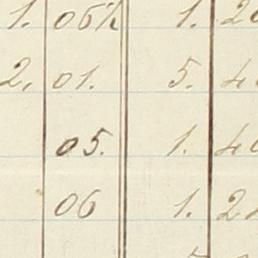 1. 06½ 1.
2, 01. 5. 4
05. 1. 40
06 1. 22